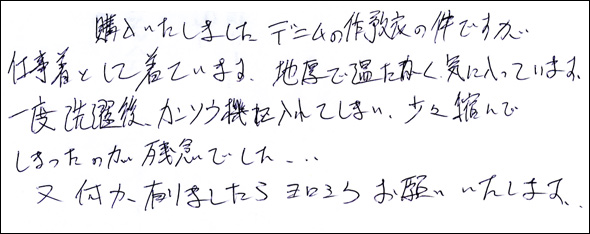 購入いたしました デニムの作務衣の件ですが
仕事着として着ています、地厚で温たかく気に入っています。
一度洗濯後、カンソウ機に入れてしまい、少々縮んで
しまったのが残念でした...
又何か有りましたらヨロシク お願いいたします。